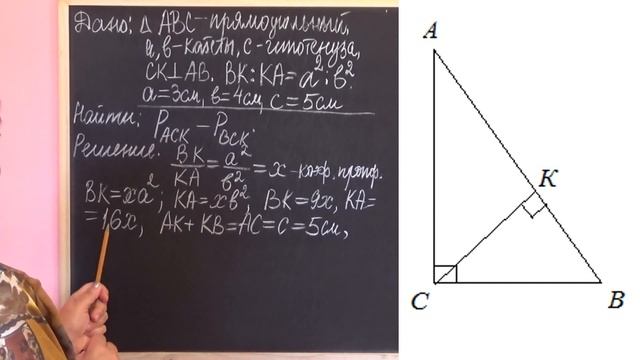 Дано: Δ ABC - прямоугольный,
a, в - катеты, c - гипотенуза,
CK⊥AB. BK:KA = a²:в².
a=3см, в=4см, c=5см
Найти: P_ACK − P_BCK.
Решение. BK/KA = a²/в² = x - коэф. проп.
BK=xa²; KA=xв², BK=9x, KA=
=16x, AK+KB=AC=c=5см,
A
K
C
B